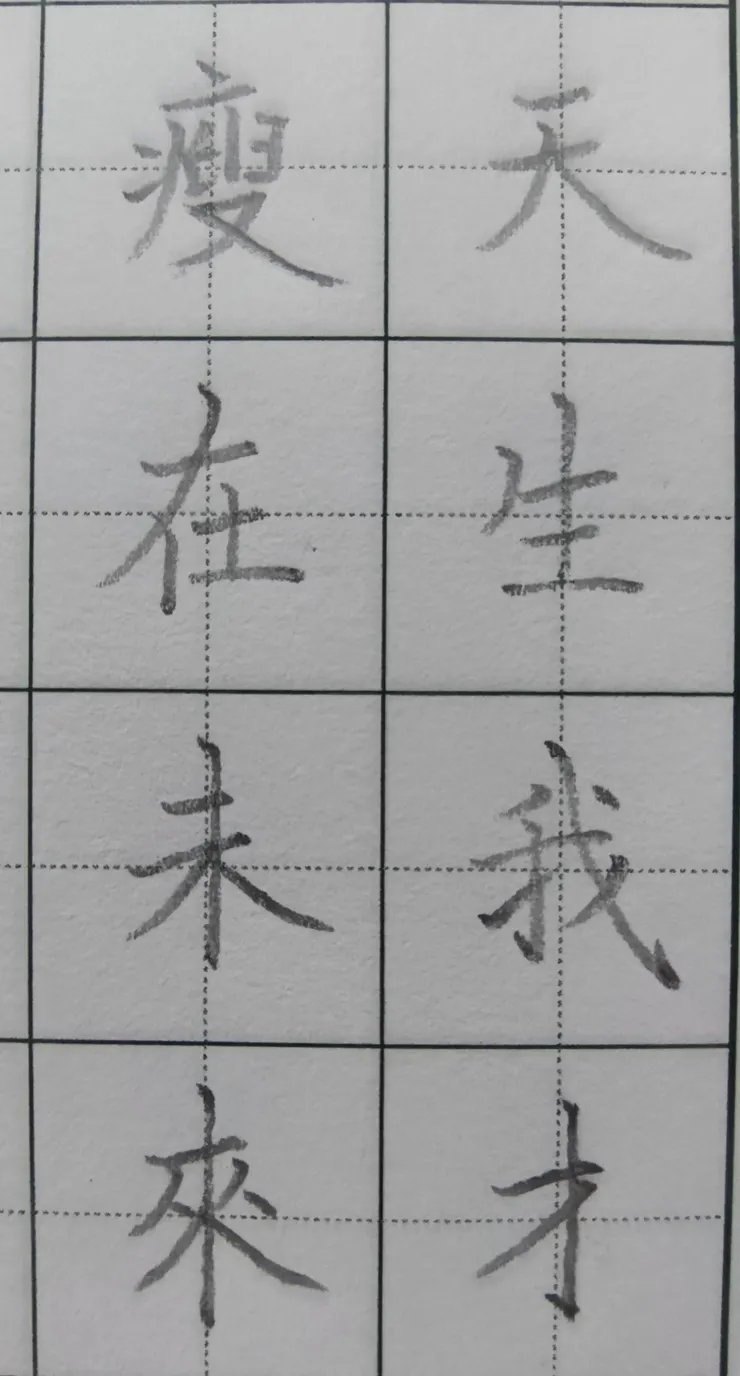 天生我才
瘦在未來